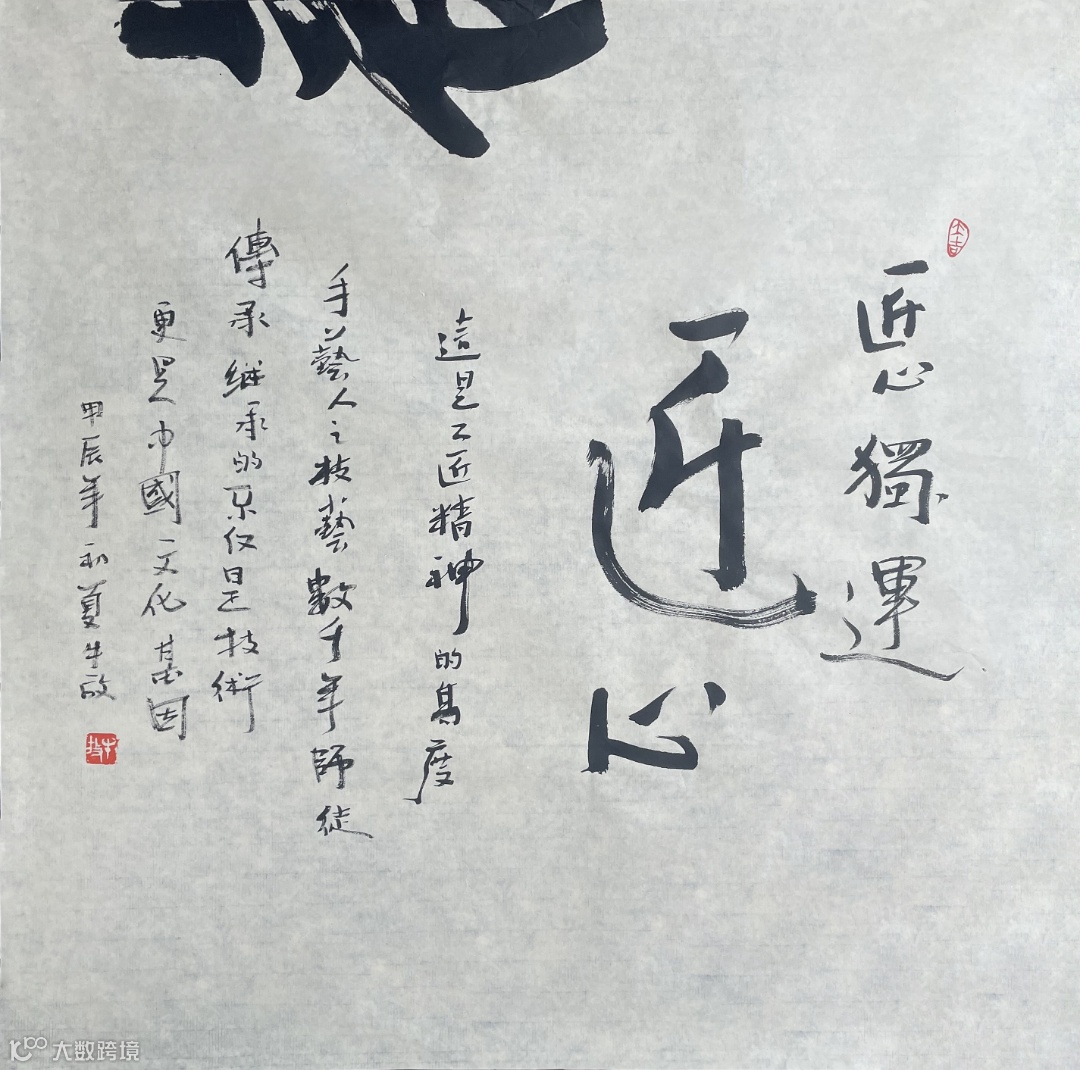 匠心獨運
匠心
這是工匠精神的高度
手艺藝人之技藝數千年師徒
傳承継承的不仅是技術
更是中國文化基因
甲辰年初夏牛啟
大吉
大数跨境